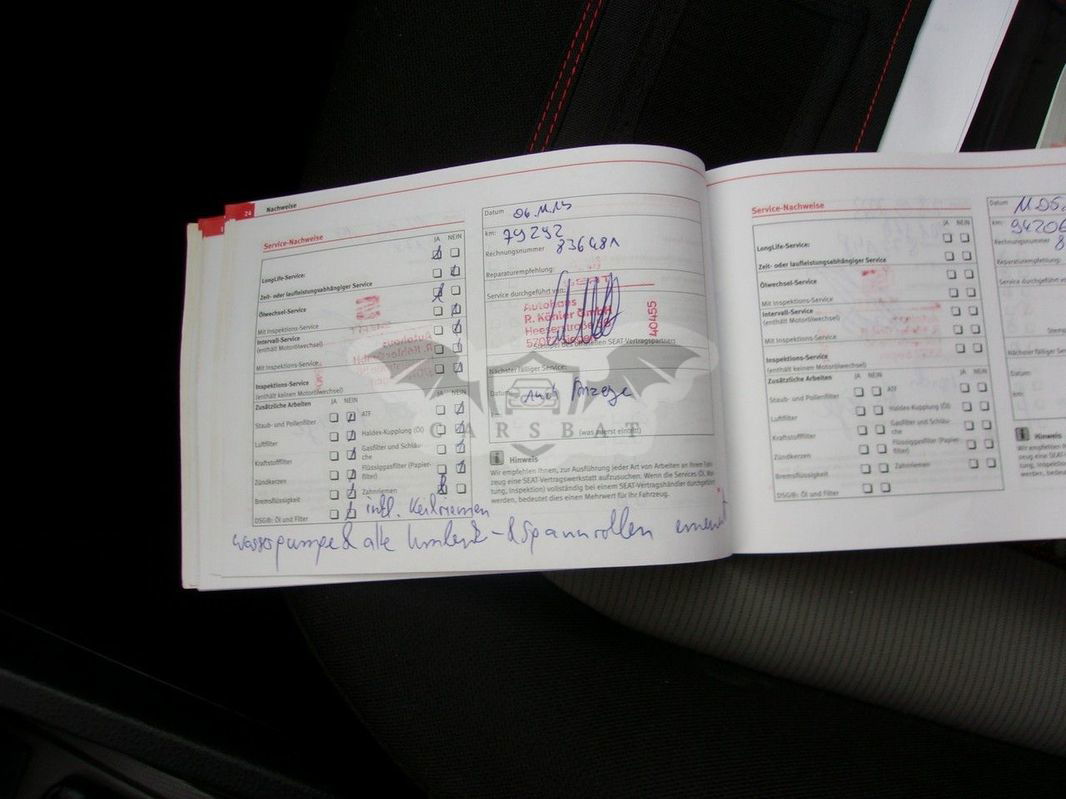 24 Nachweise
Service-Nachweise
JA NEIN
LongLife-Service:
Zeit- oder laufleistungsabhängiger Service
Ölwechsel-Service
Mit Inspektions-Service
Intervall-Service
(enthält Motorölwechsel)
Mit Inspektions-Service
Inspektions-Service
(enthält keinen Motorölwechsel)
Zusätzliche Arbeiten JA NEIN JA NEIN
Staub- und Pollenfilter ATF
Luftfilter Haldex-Kupplung (Öl)
Kraftstofffilter Gasfilter und Schläuche
Zündkerzen Flüssiggasfilter (Papierfilter)
Bremsflüssigkeit Zahnriemen
DSG®: Öl und Filter
inkl. Keilriemen
Wasserpumpe & alle Umlenk- & Spannrollen erneuert
Datum
km: 79292
Rechnungsnummer 836481
Reparaturempfehlung:
Service durchgeführt von:
Autohaus
R. Köhler GmbH
40455
des offiziellen SEAT-Vertragspartners
Nächster fälliger Service:
Datum: nach Anzeige
(was zuerst eintritt)
CARSBAT
Hinweis
Wir empfehlen Ihnen, zur Ausführung jeder Art von Arbeiten an Ihrem Fahr-
zeug eine SEAT-Vertragswerkstatt aufzusuchen. Wenn die Services (Öl, War-
tung, Inspektion) vollständig bei einem SEAT-Vertragshändler durchgeführt
werden, bedeutet dies einen Mehrwert für Ihr Fahrzeug.
Service-Nachweise
JA NEIN
LongLife-Service:
Zeit- oder laufleistungsabhängiger Service
Ölwechsel-Service
Mit Inspektions-Service
Intervall-Service
(enthält Motorölwechsel)
Mit Inspektions-Service
Inspektions-Service
(enthält keinen Motorölwechsel)
Zusätzliche Arbeiten JA NEIN JA NEIN
Staub- und Pollenfilter ATF
Luftfilter Haldex-Kupplung (Öl)
Kraftstofffilter Gasfilter und Schläuche
Zündkerzen Flüssiggasfilter (Papierfilter)
Bremsflüssigkeit Zahnriemen
DSG®: Öl und Filter
Datum
km: 94206
Rechnungsnummer 8
Reparaturempfehlung:
Service durchgeführt
Nächster fälliger
Datum:
km:
Hinweis
Wir empfehlen
zeug eine SEAT
tung, Inspektion
werden, bedeutet